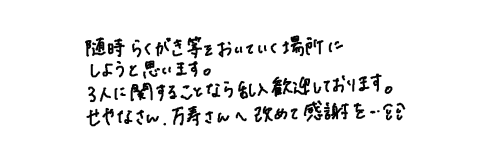 随時らくがき等をおいていく場所に
しようと思います。
3人に関することなら乱入歓迎しております。
せやなさん、万寿さんへ改めて感謝を…